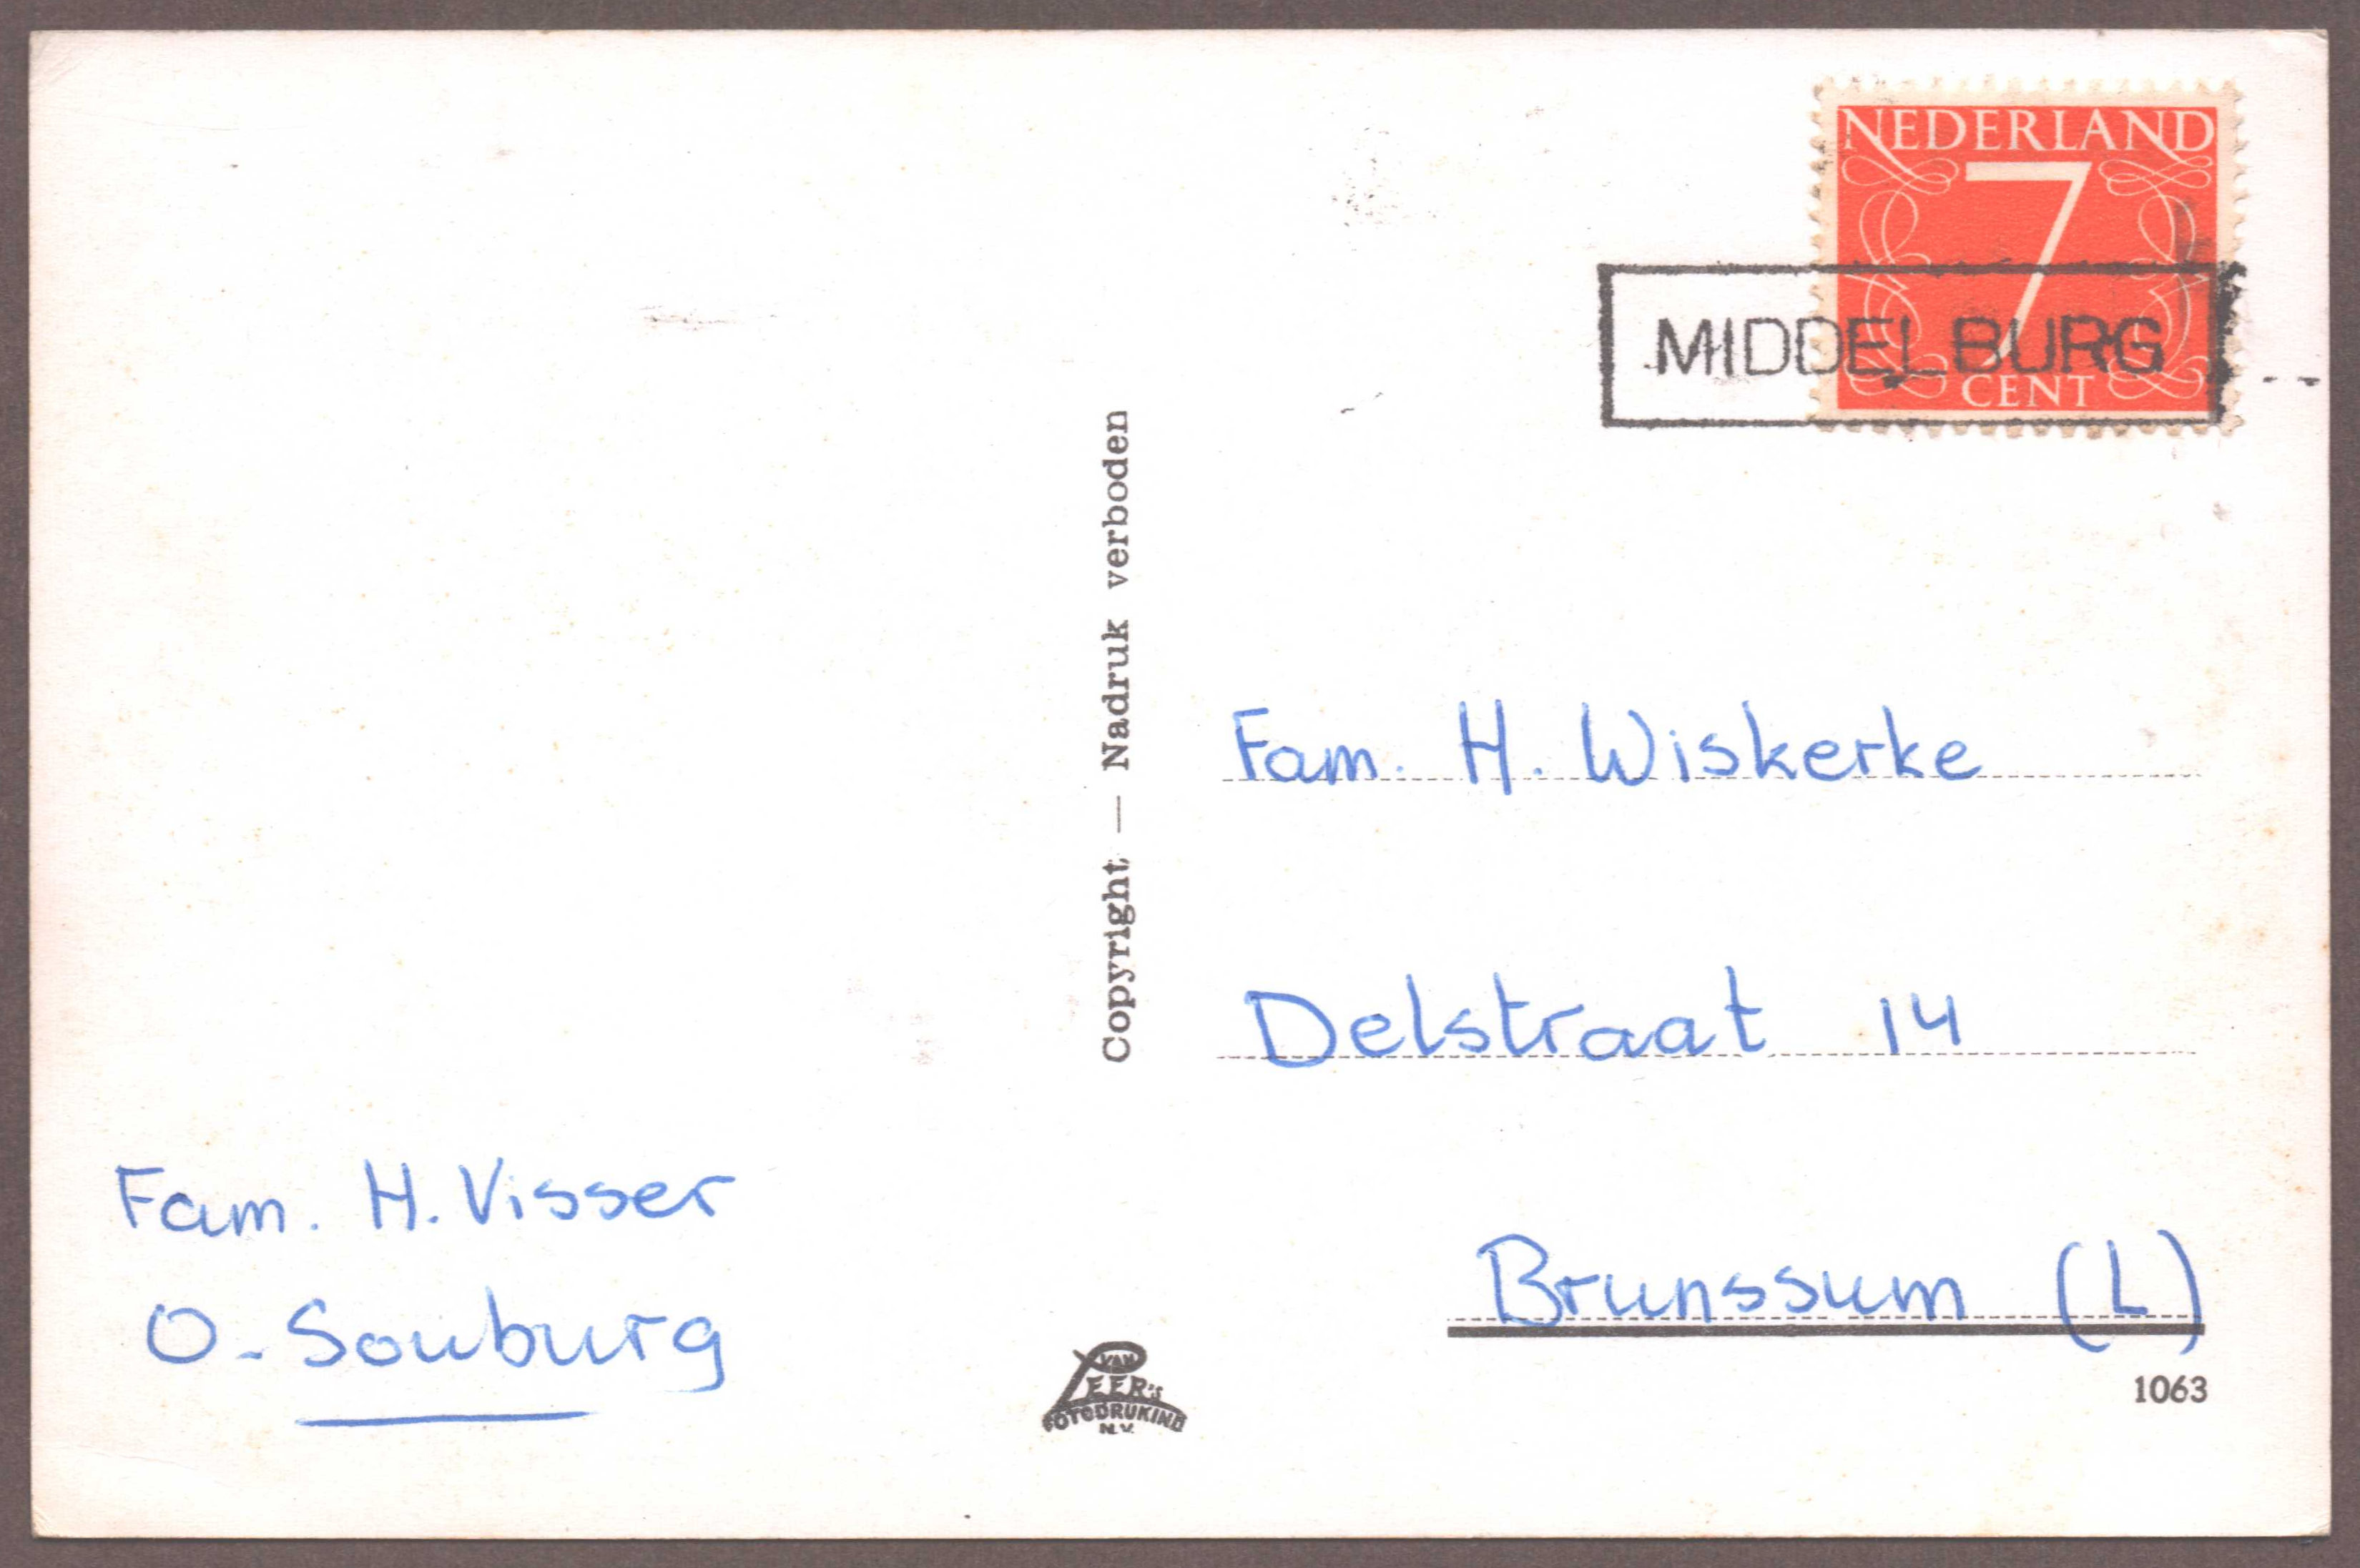 NEDERLAND
7
CENT
MIDDELBURG
Copyright — Nadruk verboden
Fam. H. Wiskerke
Delstraat 14
Brunssum (L)
1063
Fam. H. Visser
O-Souburg
VAN
LEER'S
FOTODRUKIND
N.V.